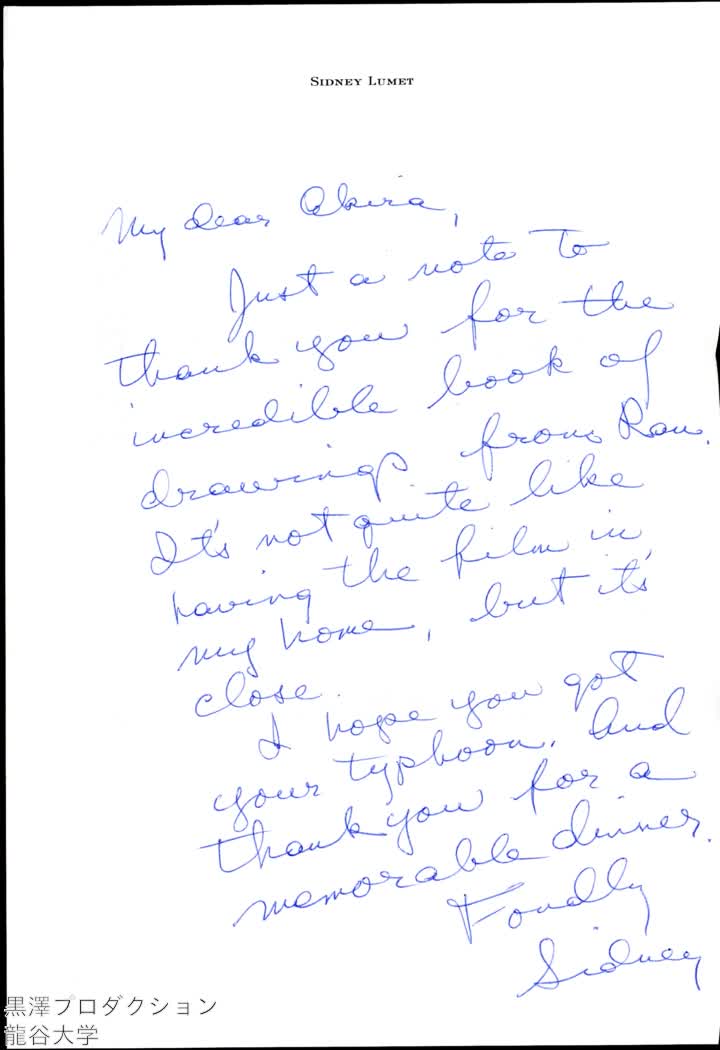 SIDNEY LUMET
My dear Akira,
Just a note to
thank you for the
incredible book of
drawings from Ran.
It's not quite like
having the film in
my home, but it's
close.
I hope you got
your typhoon. And
thank you for a
memorable dinner.
Fondly
Sidney
黒澤プロダクション
龍谷大学